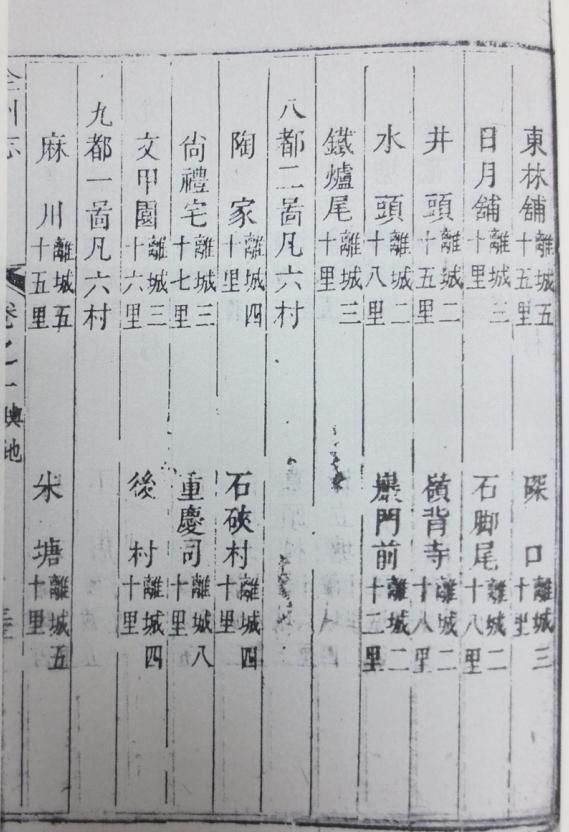 東林舖 離城五十五里 口 離城三十里
日月舖 離城三十里 石脚尾 離城二十八里
井頭 離城二十五里 嶺背寺 離城二十八里
水頭 離城二十八里 巖門前 離城二十二里
鐵爐尾 離城三十里
八都二啚凡六村
陶家 離城四十里 石硤村 離城四十里
尙禮宅 離城三十七里 重慶司 離城八十里
文甲園 離城三十六里 後村 離城四十里
九都一啚凡六村
麻川 離城五十五里 塘 離城五十里
全州志 卷之一 輿地